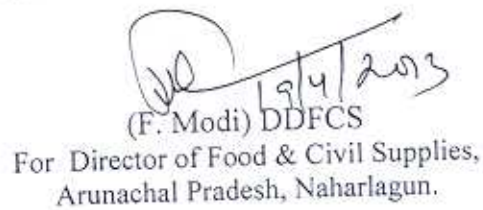 19/4/2013
(F. Modi) DDFCS
For Director of Food & Civil Supplies,
Arunachal Pradesh, Naharlagun.